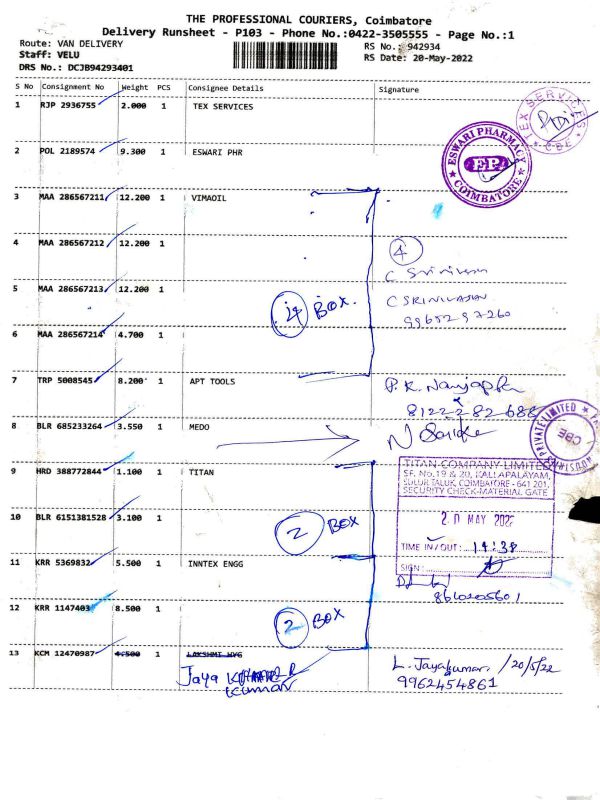 THE PROFESSIONAL COURIERS, Coimbatore
Delivery Runsheet - P103 - Phone No.:0422-3505555 - Page No.:1
Route: VAN DELIVERY
Staff: VELU
DRS No.: DCJB94293401
RS No.: 942934
RS Date: 20-May-2022
S No Consignment No Weight PCS Consignee Details Signature
1 RJP 2936755 2.000 1 TEX SERVICES
TEX SERVICES
* CBE *
2 POL 2189574 9.300 1 ESWARI PHR
ESWARI PHARMACY
EP
COIMBATORE
3 MAA 286567211 12.200 1 VIMAOIL
4 MAA 286567212 12.200 1
4
C Srinivasan
5 MAA 286567213 12.200 1
4 BOX.
C SRINIVASAN
6 MAA 286567214 4.700 1
7 TRP 5008545 8.200 1 APT TOOLS
P. K. Nanjappa
8122282688
8 BLR 685233264 3.550 1 MEDO
PRIVATE LIMITED
CBE
9 HRD 388772844 1.100 1 TITAN
TITAN COMPANY LIMITED
SF. No.19 & 20, KALLAPALAYAM,
SULUR TALUK, COIMBATORE - 641 201.
SECURITY CHECK-MATERIAL GATE
20 MAY 2022
TIME IN/OUT: 14:38
SIGN:
10 BLR 6151381528 3.100 1
2 BOX
11 KRR 5369832 5.500 1 INNTEX ENGG
8610205601
12 KRR 1147403 8.500 1
2 BOX
13 KCM 12470987 4.500 1 LAKSHMI HVG
Jaya
kumar
L. Jayakumar. /20/5/22
9962454861